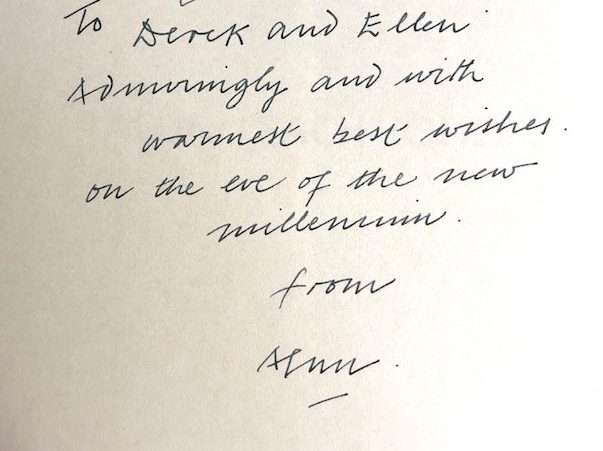 To Derek and Ellen
Admiringly and with
warmest best wishes.
on the eve of the new
millennium.
from